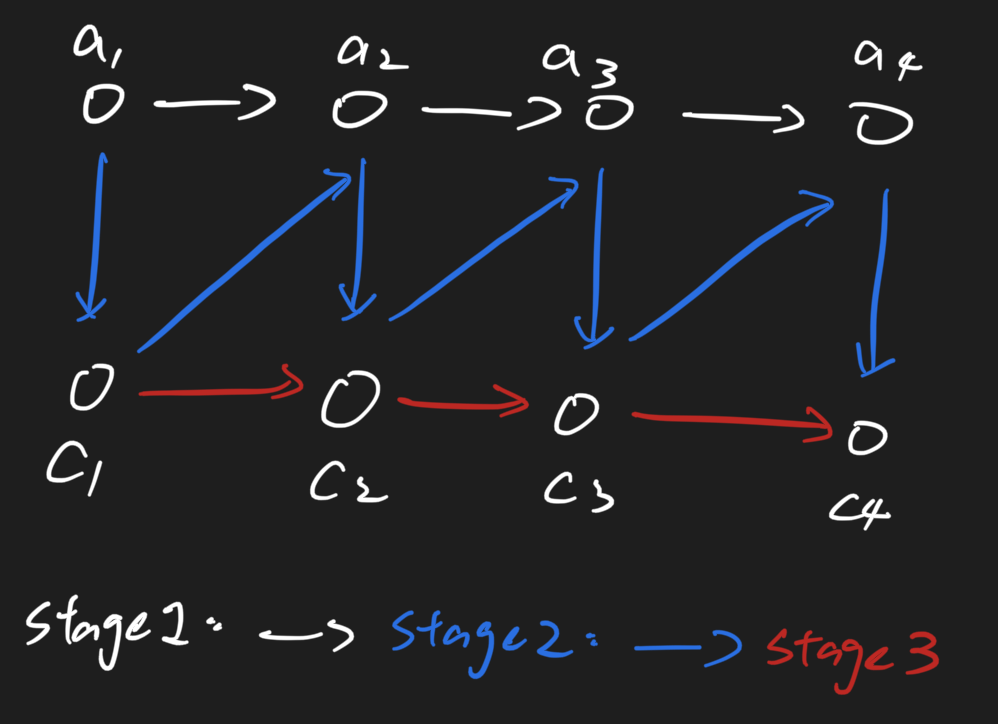 a1 a2 a3 a4
c1 c2 c3 c4
stage1: → stage2: → stage3